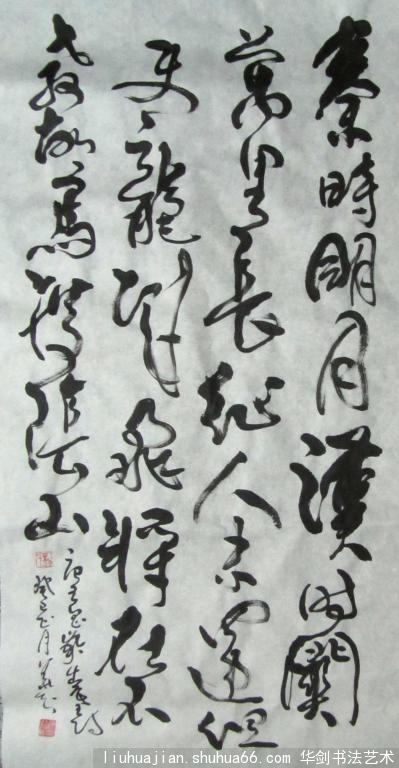 秦時明月漢时關
萬里長征人未還但
使龍城飛將在不
教胡馬度陰山
癸巳
liuhuajian.shuhua66.com 华剑书法艺术